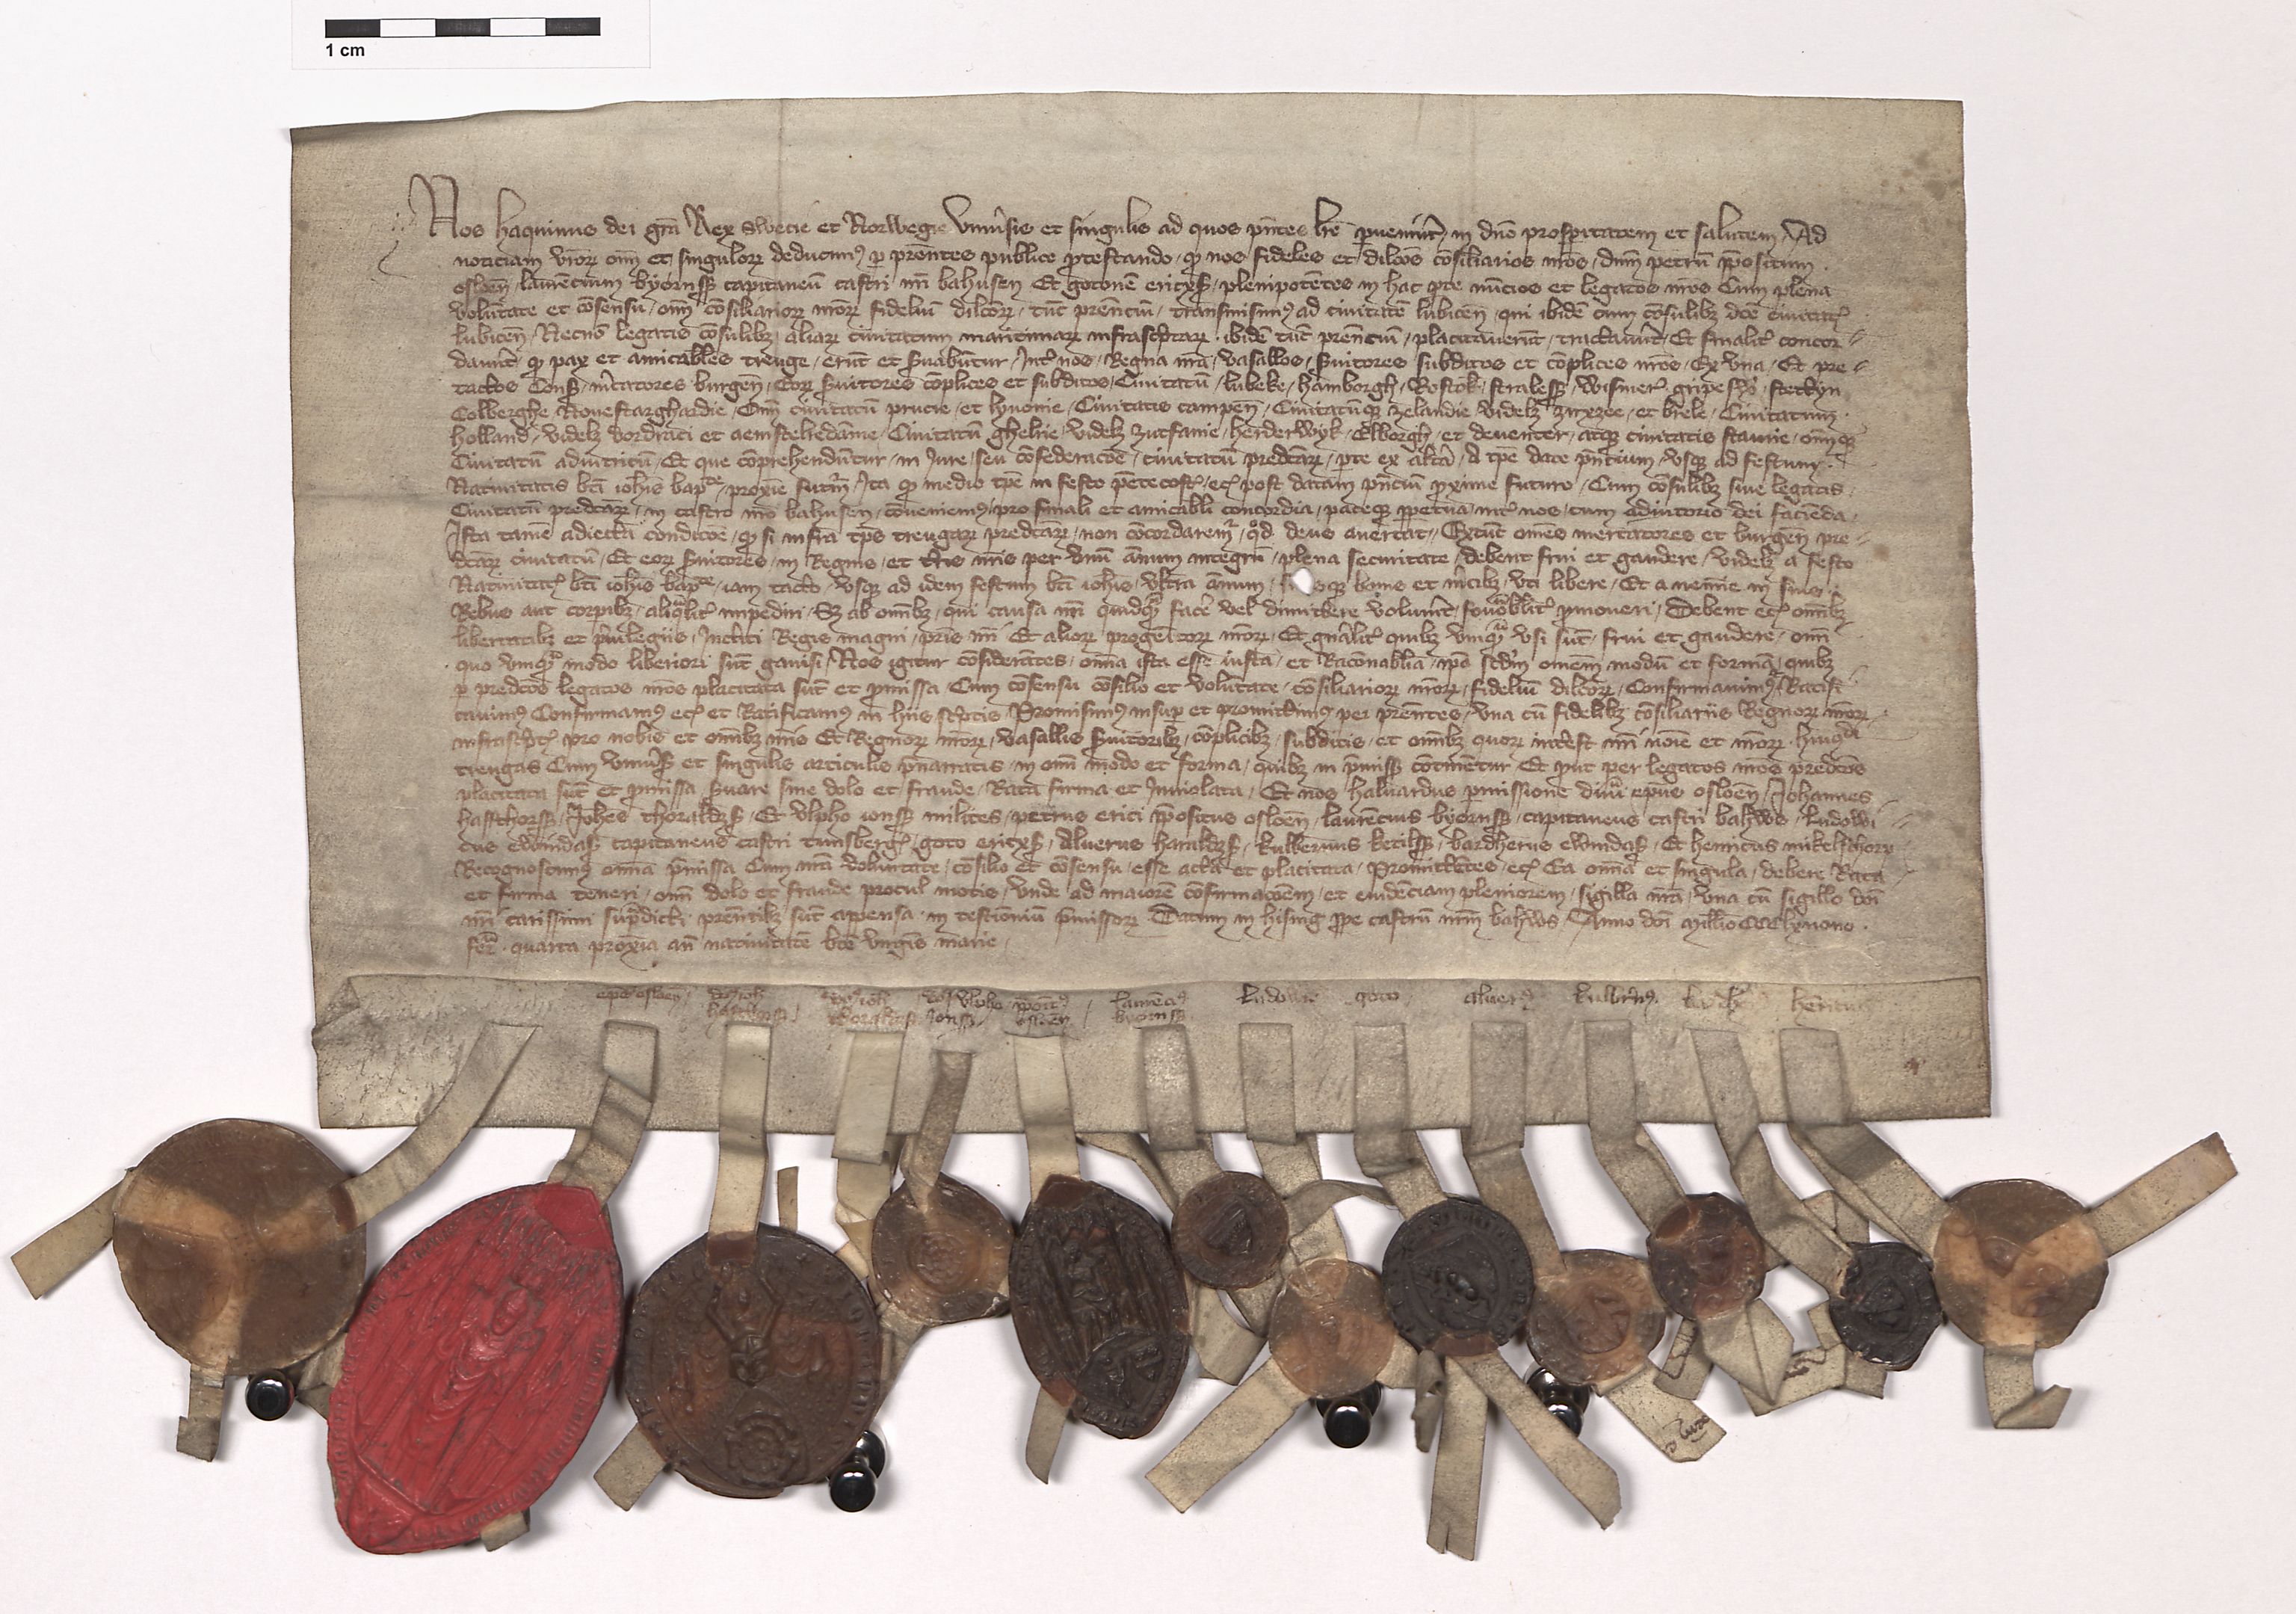 1 cm
Nos haquinus dei gra Rex Swecie et Norwegie Vniuersis et singulis ad quos pntes lre peruenerint in dno prosperitatem et salutem Ad
noticiam vror omi et singulor deducimus per presentes publice protestando quod nos fideles et dilcos consiliarios nros dnm petru prepositum
osloen laurencium byornss capitaneu castri nri bahusen Et gotonem ericxs plenipotentes in hac parte nuncios et legatos nros Cum plena
voluntate et consensu omi consiliarior nror fideliu dilcor tunc presenciu transmisimus ad ciuitatem lubicen qui ibide cum consulibz dce ciuitatis
lubicen Necno legatis consulibz aliar ciuitatum maritimar infrascriptar ibide tunc presenciu placitauerunt tractauerunt Et finaliter concor
dauerunt quod pax et amicabiles treuge erunt et seruabuntur Inter nos Regna nra vasallos seruitores subditos et complices nros Ex vna Et pre
tactos Cons mercatores burgen Eor seruitores complices et subditos Ciuitatu lubeke hamborgh Rostok straless wismer gripesw stettyn
Colberghe Nouestarghardie Omi ciuitatu prucie et lyuonie Ciuitatis campen Ciuitatumque zelandie videlz zirixzee et brele Ciuitatum
holland videlz dordraci et aemstelredamme Ciuitatu ghelrie videlz zutfanie herderwyk Elborgh et deuenter atque ciuitatis staurie omique
Ciuitatu adiutricu Et que comprehenduntur in Iure seu confederacoe ciuitatu predictar parte ex altera A tpe date presencium vsque ad festum
Natiuitatis bti iohis bapte proxime futurum Ita quod medio tpe in festo pentecostes eciam post datam presenciu proxime futuro Cum consulibz siue legatis
Ciuitatu predictar in castro nro bahusen conueniemus pro finali et amicabili concordia paceque perpetua inter nos cum adiutorio dei facienda
Ista tame adiecta condicoe quod si infra tps treugar predictar non concordaremur quod deus auertat Extunc omes mercatores et burgen pre
dictar ciuitatu Et eor seruitores in Regnis et terris nris per vnu annum integru plena securitate debent frui et gaudere videlz a festo
Natiuitatis bti iohis bapte iam tacto vsque ad idem festum bti iohis vltra annum bonis et mercibz vti libere Et a nemine in suis
Rebus aut corporibz aliqualiter impediri Sz ab omibz qui causa nri quidquam facere vel dimittere voluerint fauorabiliter promoueri Debent eciam omibz
libertatibz et priuilegiis Incliti Regis magni pris nri Et alior progenitor nror Et generaliter quibz vmquam vsi sunt frui et gaudere omi
quo vmquam modo liberiori sunt gauisi Nos igitur considerantes omia ista esse iusta et Racionabilia ipa scdm omem modu et formam quibz
per predictos legatos nros placitata sunt et promissa Cum consensu consilio et voluntate consiliarior nror fideliu dilcor Confirmauimus Ratifi
cauimus Confirmamus eciam et Ratificamus in hiis scriptis Promisimus insuper et promittimus per presentes vna cu fidelibz consiliariis Regnor nror
infrascriptis pro nobis et omibz nris Et Regnor nror vasallis seruitoribz complicibz subditis et omibz quor interest nri noie et nror huiusmodi
treugas Cum vniuersis et singulis articulis prenarratis in omi modo et forma quibz in premissis continentur Et prout per legatos nros predictos
placitata sunt et promissa seruare sine dolo et fraude Rata firma et Inuiolata Et nos haluardus permissione diuina epus osloen Johannes
haffthorss Johes thoraldzs Et vlpho ionss milites petrus erici prepositus osloen laurencius byornss capitaneus castri bahws ludowi
cus ewindas capitaneus castri tunsbergh goto ericxs Aluerus haraldzs kulbernus ketilss bardherus ewindas Et henricus mikelschorp
Recognoscimus omia premissa Cum nra voluntate consilio et consensu esse acta et placitata Promittentes eciam Ea omia et singula debere Rata
et firma teneri omi dolo et fraude procul motis Vnde ad maiorem confirmacoem et euidenciam pleniorem sigilla nra vna cu sigillo dni
nri carissimi supradicti presentibz sunt appensa in testimoniu premissor Datum in hising prope castru nrm bahws Anno dni Millio CCClxnono
feria quarta proxima an natiuitate bte virginis marie
epus osloen dns ioh hafthorss dns ioh thoraldss dns vlpho ionss ppoitus osloen laurencius byornss ludowic goto aluerus kulbernus bardher henricus